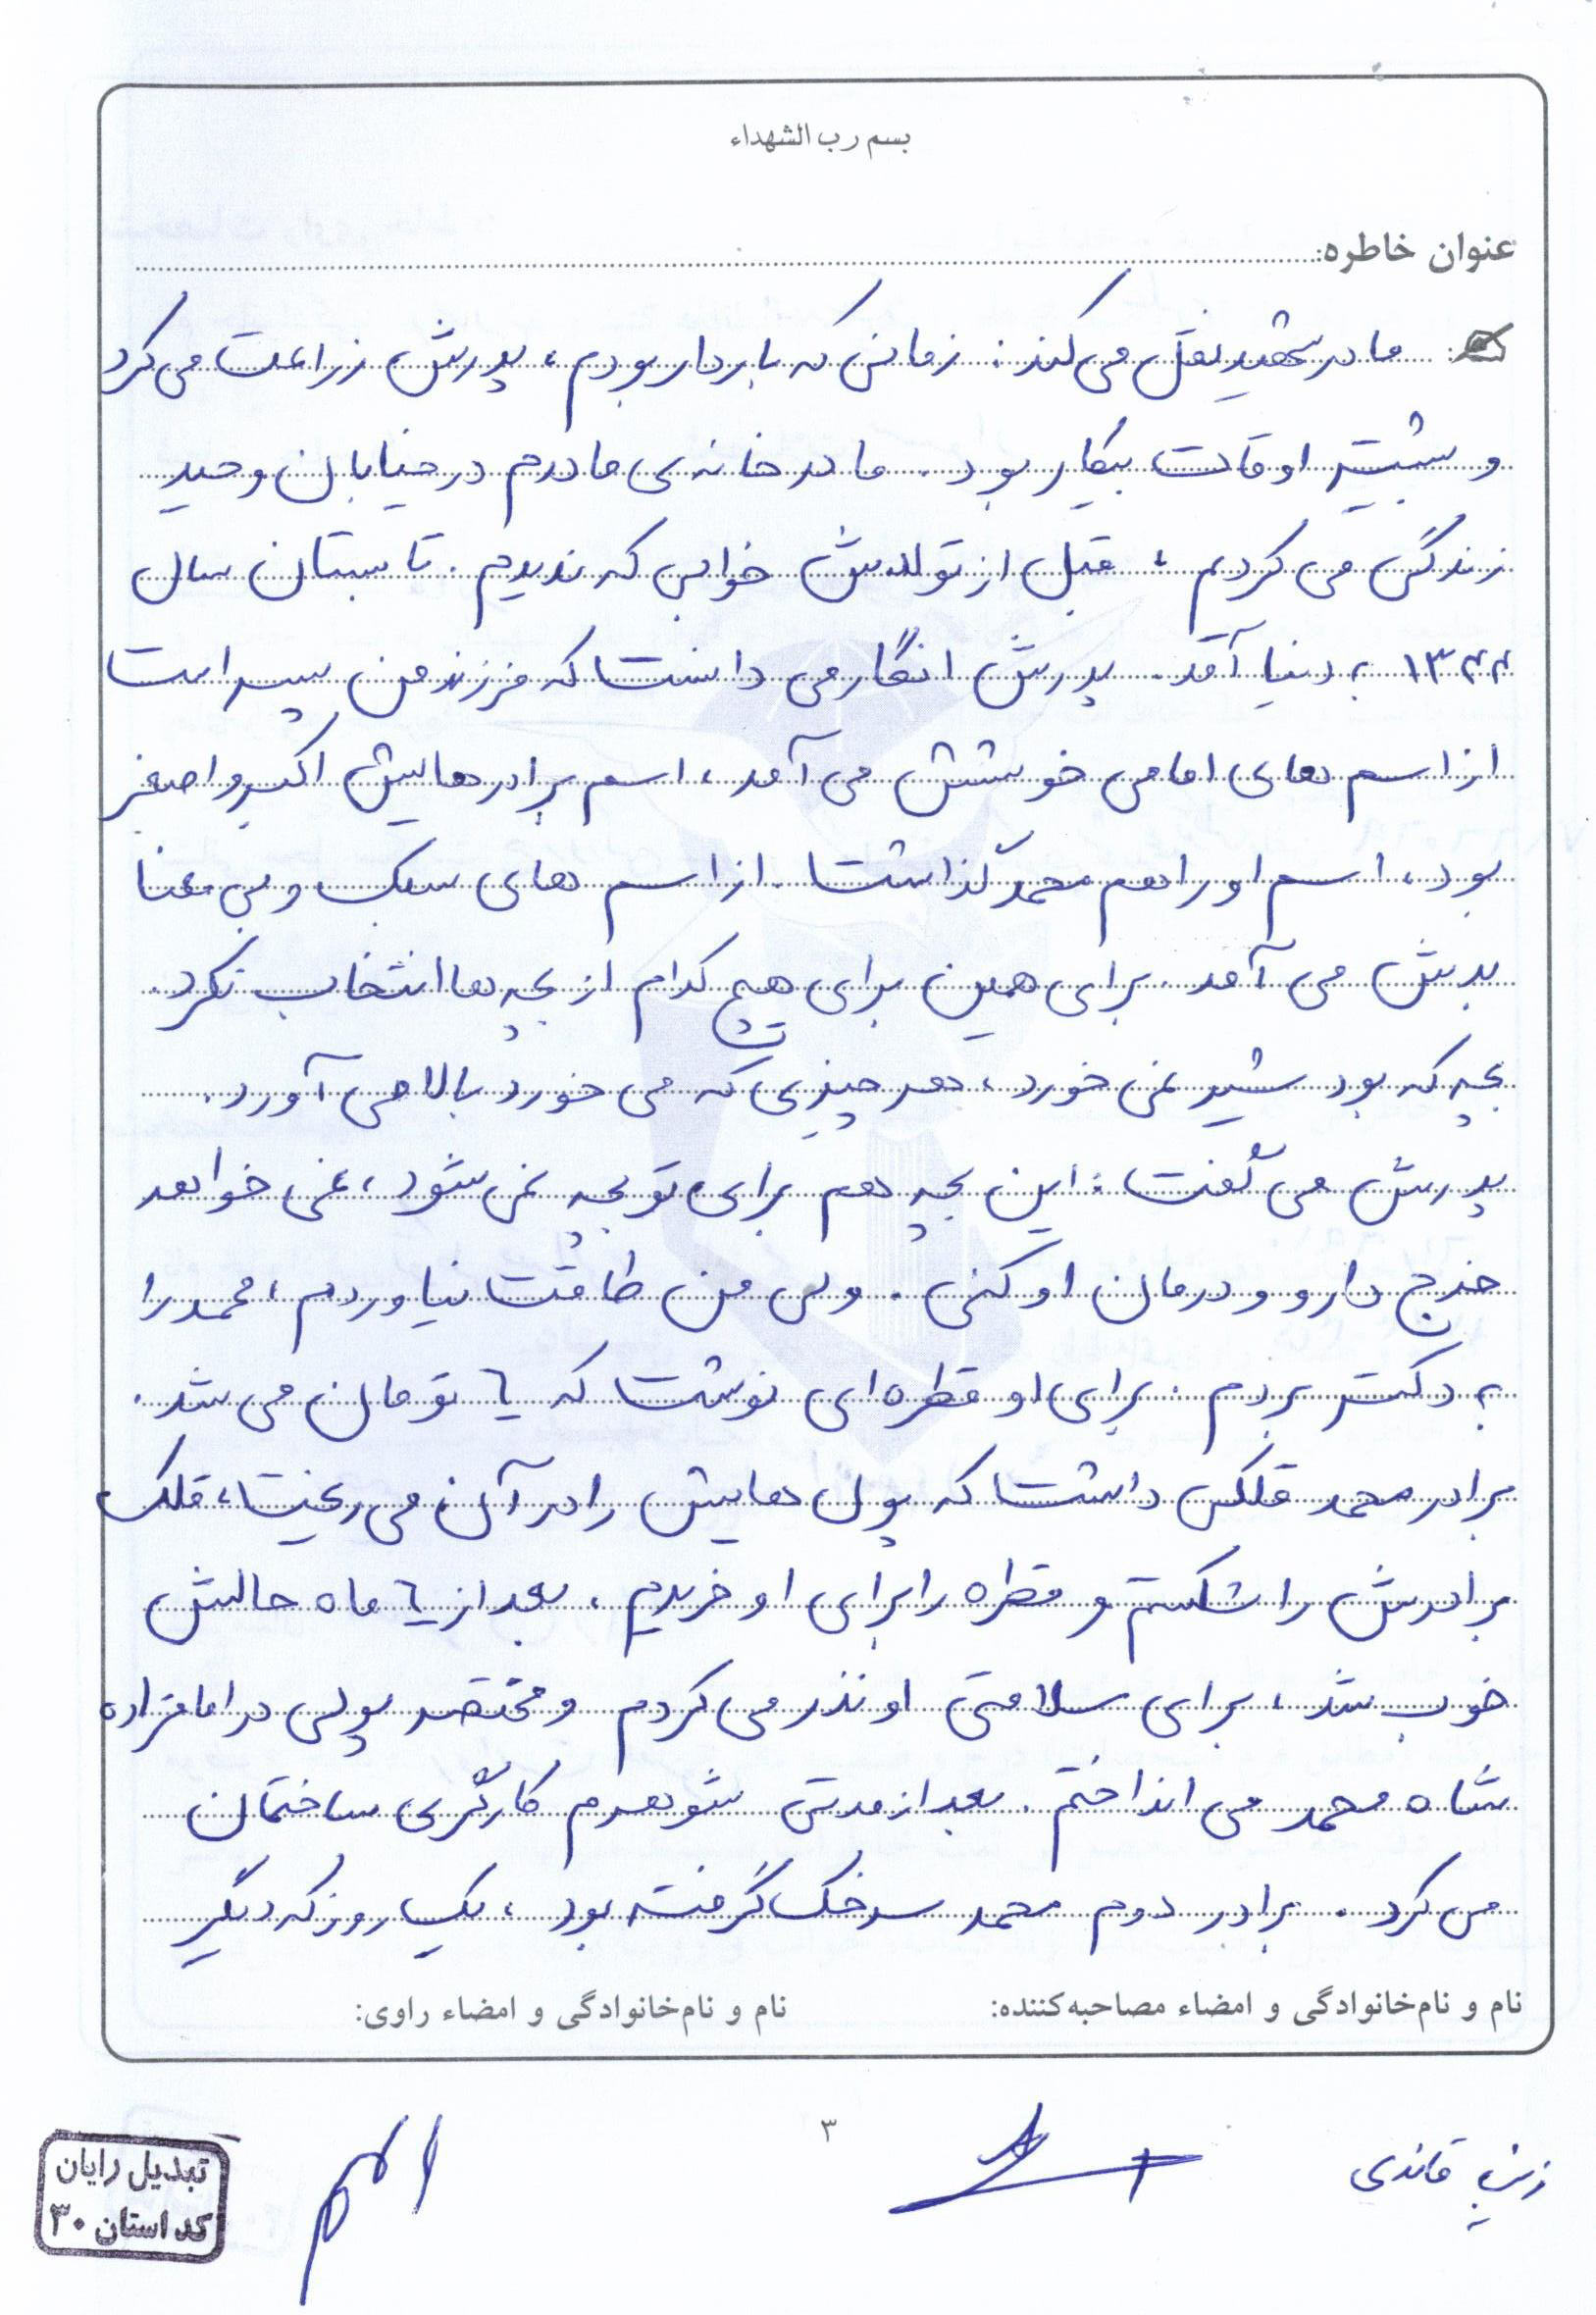 بسم رب الشهداء
عنوان خاطره:
مادر شهید نقل می کند: زمانی که باردار بودم، پدرش زراعت می کرد
و بیشتر اوقات بیکار بود. ما در خانه ی مادرم در خیابان وحید
زندگی می کردیم، قبل از تولدش خوابی که ندیدم. تابستان سال
۱۳۴۴ به دنیا آمد. پدرش انگار می دانست که فرزند من پسر است
از اسم های امامی خوشش می آمد، اسم برادرهایش اکبر و اصغر
بود، اسم او را هم محمد گذاشت. از اسم های سبک و بی معنا
بدش می آمد. برای همین برای هیچ کدام از بچه ها انتخاب نکرد.
بچه که بود شیر نمی خورد، هر چیزی که می خورد بالا می آورد.
پدرش می گفت: این بچه هم برای تو بچه نمی شود، نمی خواهد
خرج دارو و درمان او کنی. ولی من طاقت نیاوردم، محمد را
به دکتر بردم. برای او قطره ای نوشت که ۶ تومان می شد.
برادر محمد قلکی داشت که پول هایش را در آن می ریخت، قلک
برادرش را شکستم و قطره را برای او خریدم، بعد از ۶ ماه حالش
خوب شد، برای سلامتی او نذر می کردم و مختصر پولی در امامزاده
شاه محمد می انداختم. بعد از مدتی شوهرم کارگری ساختمان
می کرد. برادر دوم محمد سرخک گرفته بود، یک روز که دیگر
نام و نام خانوادگی و امضاء مصاحبه کننده:
نام و نام خانوادگی و امضاء راوی:
زینب قائدی
۳
تبدیل رایان
کد استان ۳۰